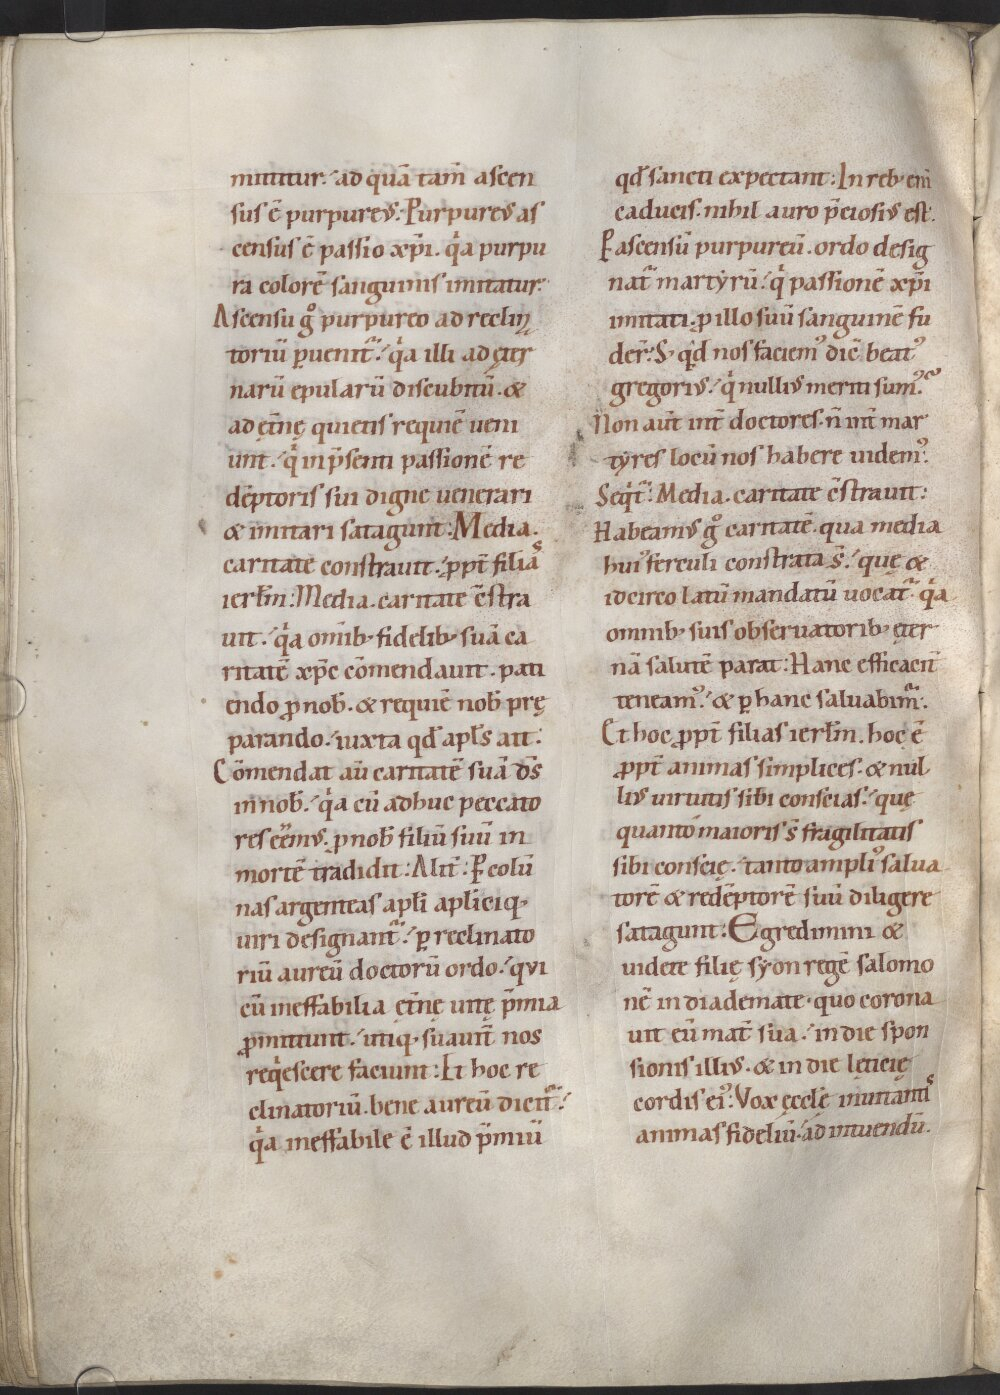 mittitur. ad quā tam̄ ascen
sus ē purpureus. Purpureus as
census ē passio xp̄i. qͥa purpu
ra colorē sanguinis imitatur.
Ascensu gͦ purpureo ad reclina
toriū ꝑuenit᷑. qͥa illi ad ęter
narū epularū discubitū. &
ad ęt̄nę quietis requiē ueni
unt. qͥ in p̄senti passionē re
dēptoris sui digne uenerari
& imitari satagunt: Media.
caritate constrauit. ꝓpt̄ filias
ierl̄m: Media. caritate c̄stra
uit. qͥa omīb; fidelib; suā ca
ritatē xp̄c cōmendauit. pati
endo ꝓ nob̄. & requiē nob̄ prę
parando. iuxta qd̄ apl̄s ait:
Cōmendat aū caritatē suā dn̄s
in nob̄. qͥa cū adhuc peccato
res eēmus. ꝓ nob̄ filiū suū in
mortē tradidit: Alit̄: P̱ colū
nas argenteas apl̄i apl̄iciq;
uiri designant᷑. ꝑ reclinato
riū aureū doctorū ordo. qui
cū ineffabilia ęt̄nę uitę p̄mia
ꝓmittunt. utiq; suauit̄ nos
reqͥescere faciunt: Et hoc re
clinatoriū. bene aureū dicit᷑.
qͥa ineffabile ē illud p̄miū
qd̄ sancti expectant: In reb; eni̅
caducis. nihil auro p̄ciosius est.
P̱ ascensū purpureū. ordo desig
nat᷑ martyrū. qͥ passionē xp̄i
imitati. ꝓ illo suū sanguinē fu
der̄: S; qͥd nos faciemꝰ diē beatꝰ
gregorius. qͥ nullius meriti sumꝰ?
Non aūt int̄ doctores. n̄ int̄ mar
tyres locū nos habere uidemꝰ.
Seqͥt᷑: Media. caritate c̄strauit:
Habeamus gͦ caritatē. qua media
huiꝰ ferculi constrata s̄. quę &
idcirco latū mandatū uocat᷑. qͥa
omnib; suis obseruatorib; ęter
nā salutē parat: Hanc efficacit̄
teneamꝰ. & ꝑ hanc saluabim᷑.
Et hoc ꝓpt̄ filias ierl̄m. hoc ē
ꝓpt̄ animas simplices. & nul
lius uirtutis sibi conscias. quę
quanto maioris s̄ fragilitatis
sibi conscię. tanto ampliꝰ salua
torē & redēptorē suū diligere
satagunt: Egredimini &
uidete filię syon regē salomo
nē in diademate. quo corona
uit eū mat̄ sua. in die spon
sionis illius. & in die lęticię
cordis eiꝰ: Vox ęccl̄e inuitantis
animas fideliū. ad intuendū.